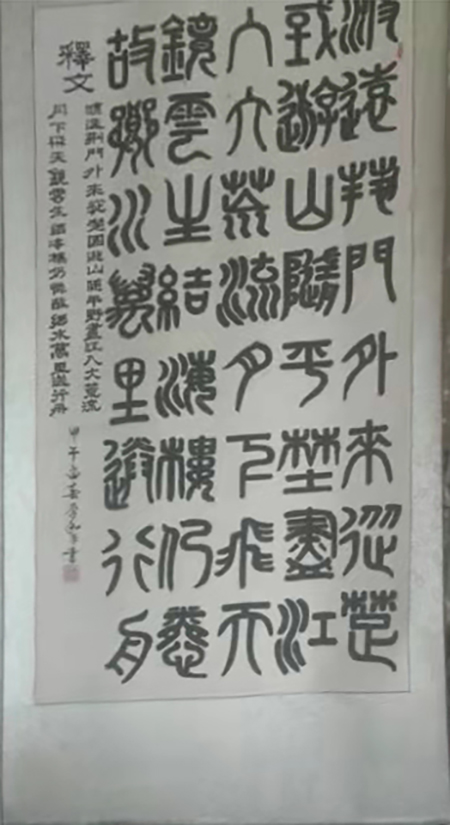 渡遠荊門外來從楚
或遊山隨平野盡江
入大荒流月下飛天
鏡雲生結海樓仍憐
故鄉水萬里送行舟
釋文
渡遠荊門外來從楚國遊山隨平野盡江入大荒流
月下飛天鏡雲生結海樓仍憐故鄉水萬里送行舟
甲午書